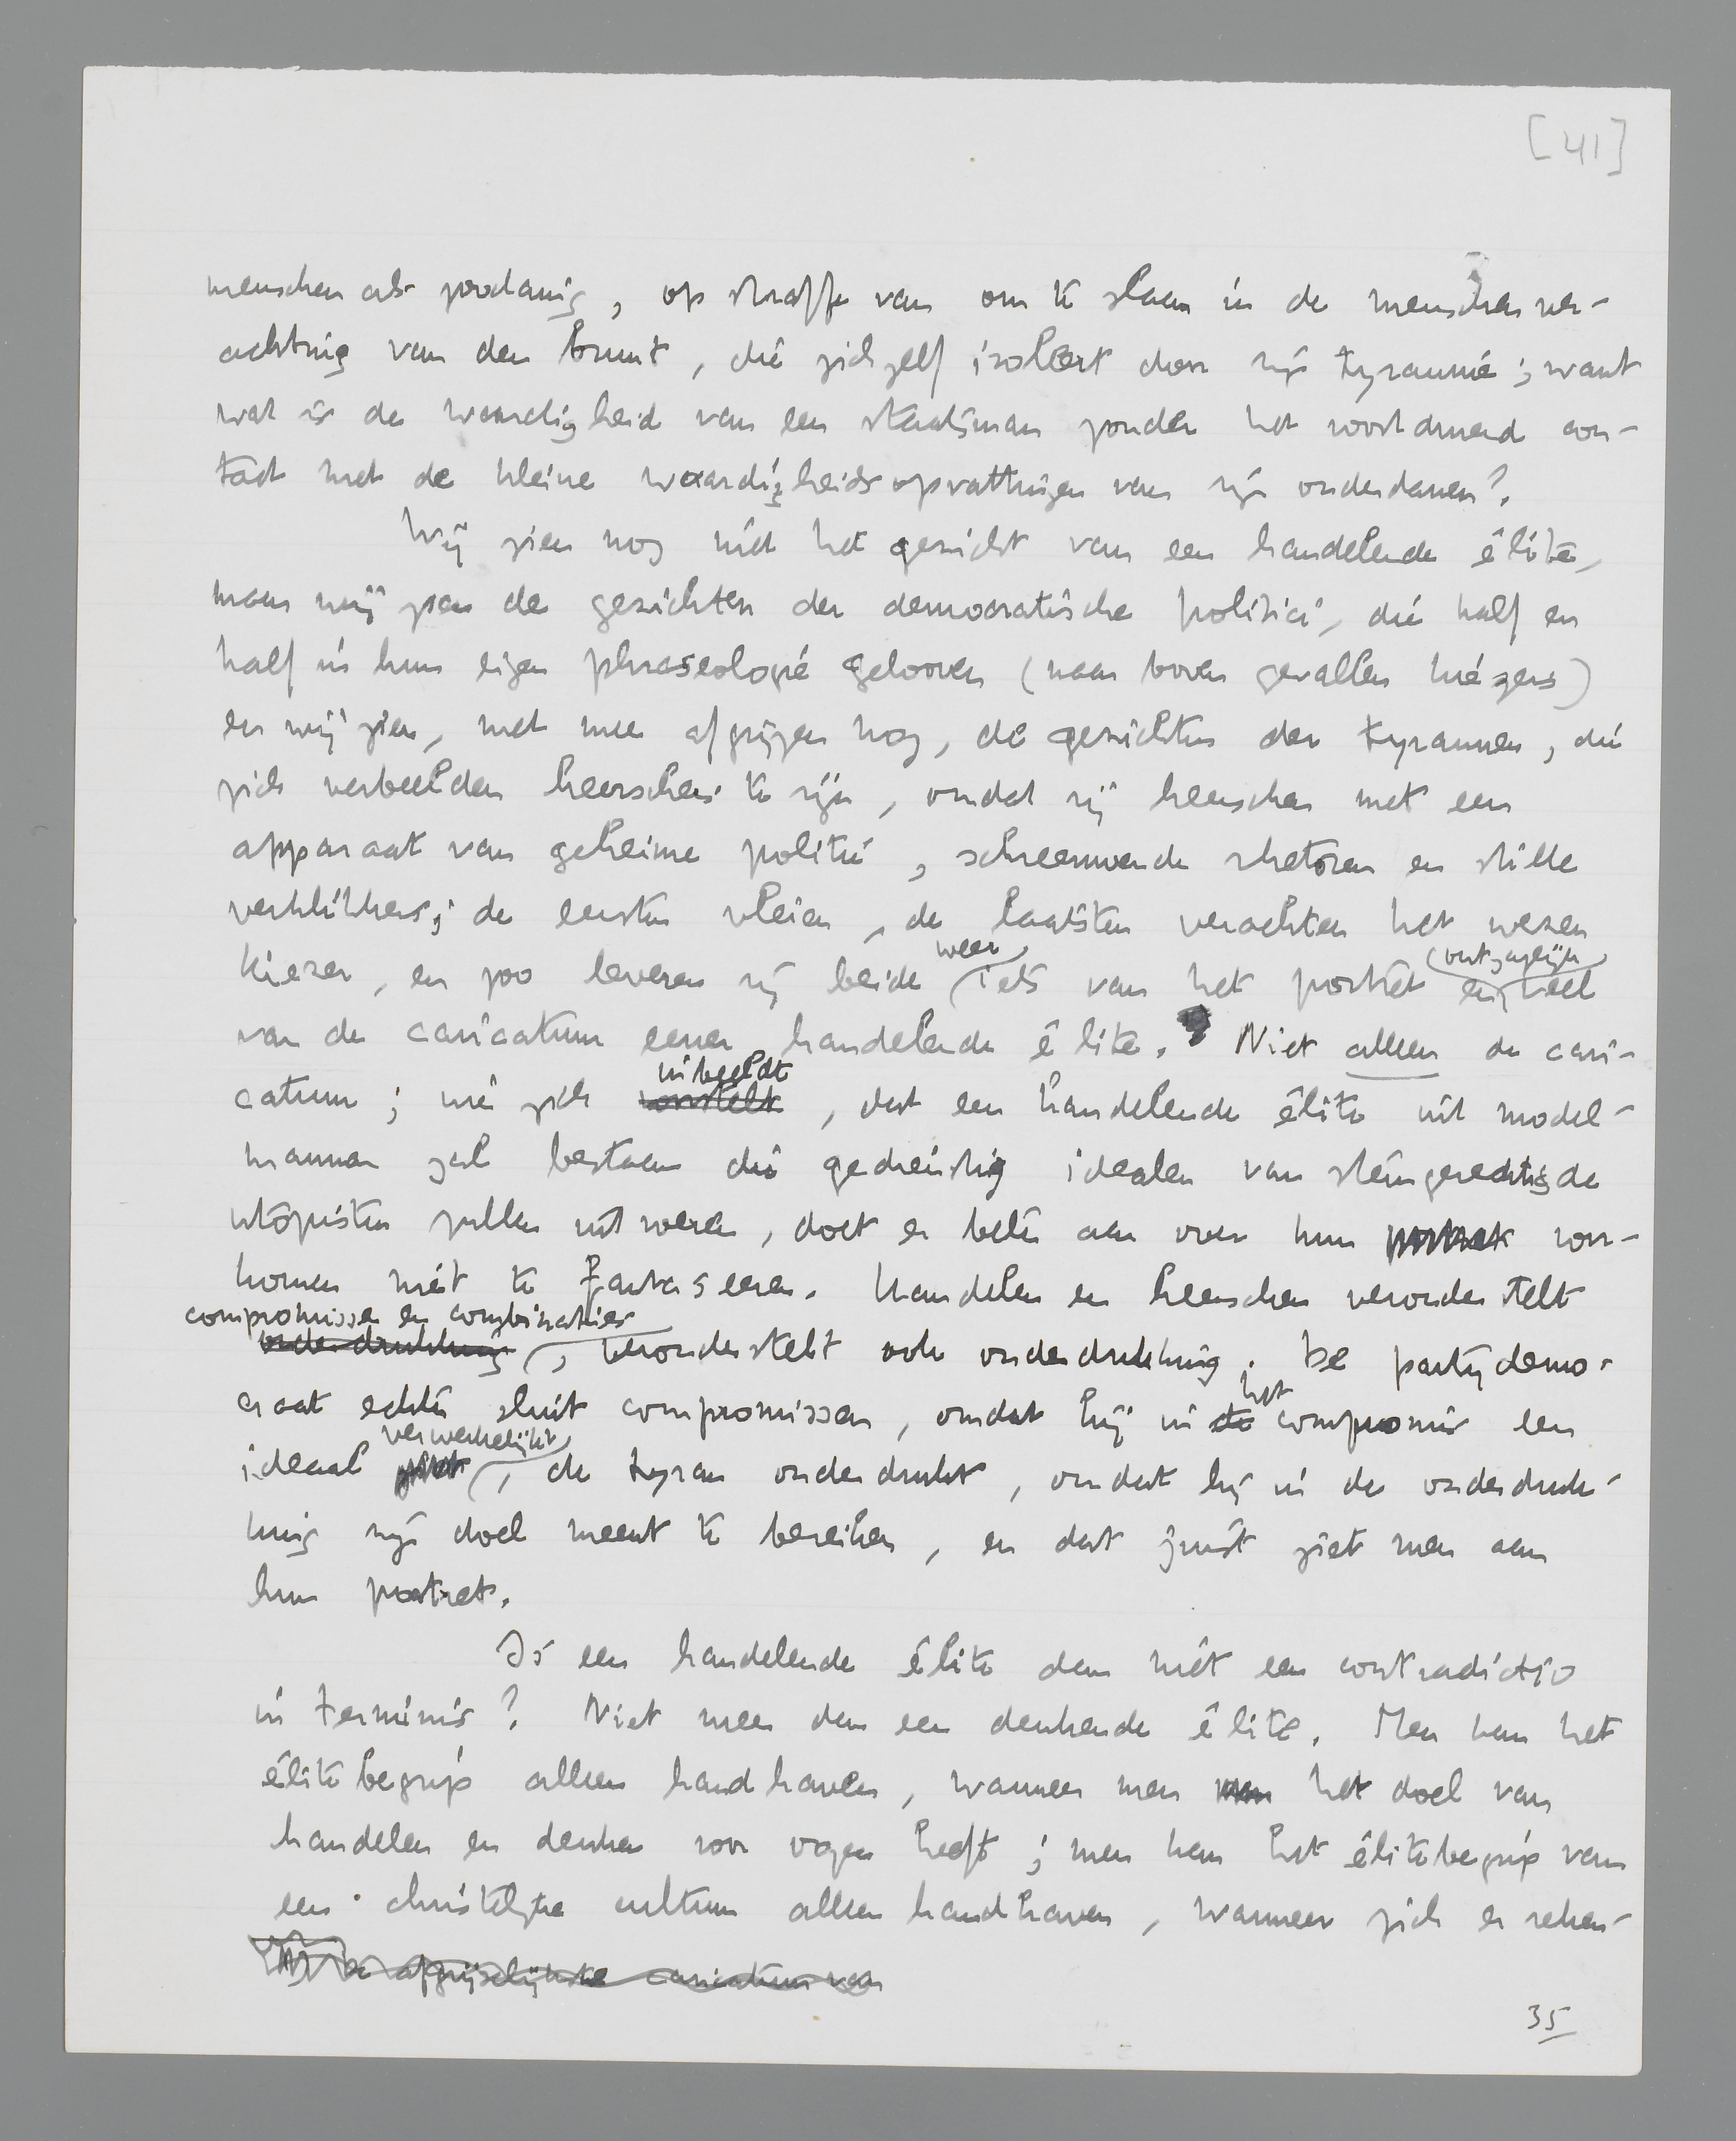 [41]
menschen als zoodanig, op straffe van om te slaan in de menschenver-
achting van den bruut, die zichzelf isoleert door zijn tyrannie; want
wat is de waardigheid van een staatsman zonder het voortdurend con-
tact met de kleine waardigheidsopvattingen van zijn onderdanen?
Wij zien nog niet het gezicht van een handelende élite,
maar wij zien de gezichten der democratische politici, die half en
half in hun eigen phraseologie gelooven (naar boven gevallen kiezers)
en wij zien, met meer afgrijzen nog, de gezichten der tyrannen, die
zich verbeelden heerschers te zijn, omdat zij heerschen met een
apparaat van geheime politie, schreeuwende rhetoren en stille
verklikkers; de eersten vleien, de laatsten verachten het wezen
kiezer, en zoo leveren zij beide weer iets van het portret en ontzaglijk veel
van de caricatuur eener handelende élite. Niet alleen de cari-
catuur; wie zich voorstelt inbeeldt, dat een handelende élite uit model-
mannen zal bestaan die gedienstig idealen van stemgerechtigde
utopisten zullen uitvoeren, doet er beter aan over hun portret voor-
komen niet te fantaseeren. Handelen en heerschen veronderstelt
compromissen en combinaties
onderdrukking, veronderstelt ook onderdrukking. De partijdemo-
craat echter sluit compromissen, omdat hij in de het compromis een
ideaal verwerkelijkt, de tyran onderdrukt, omdat hij in de onderdruk-
king zijn doel meent te bereiken, en dat juist ziet men aan
hun portret.
Is een handelende élite dan niet een contradictio
in terminis? Niet meer dan een denkende élite. Men kan het
élitebegrip alleen handhaven, wanneer men men het doel van
handelen en denken voor oogen heeft; men kan het élitebegrip van
een christelijke cultuur alleen handhaven, wanneer zich er reken-
de afgrijselijkste caricatuur van
35